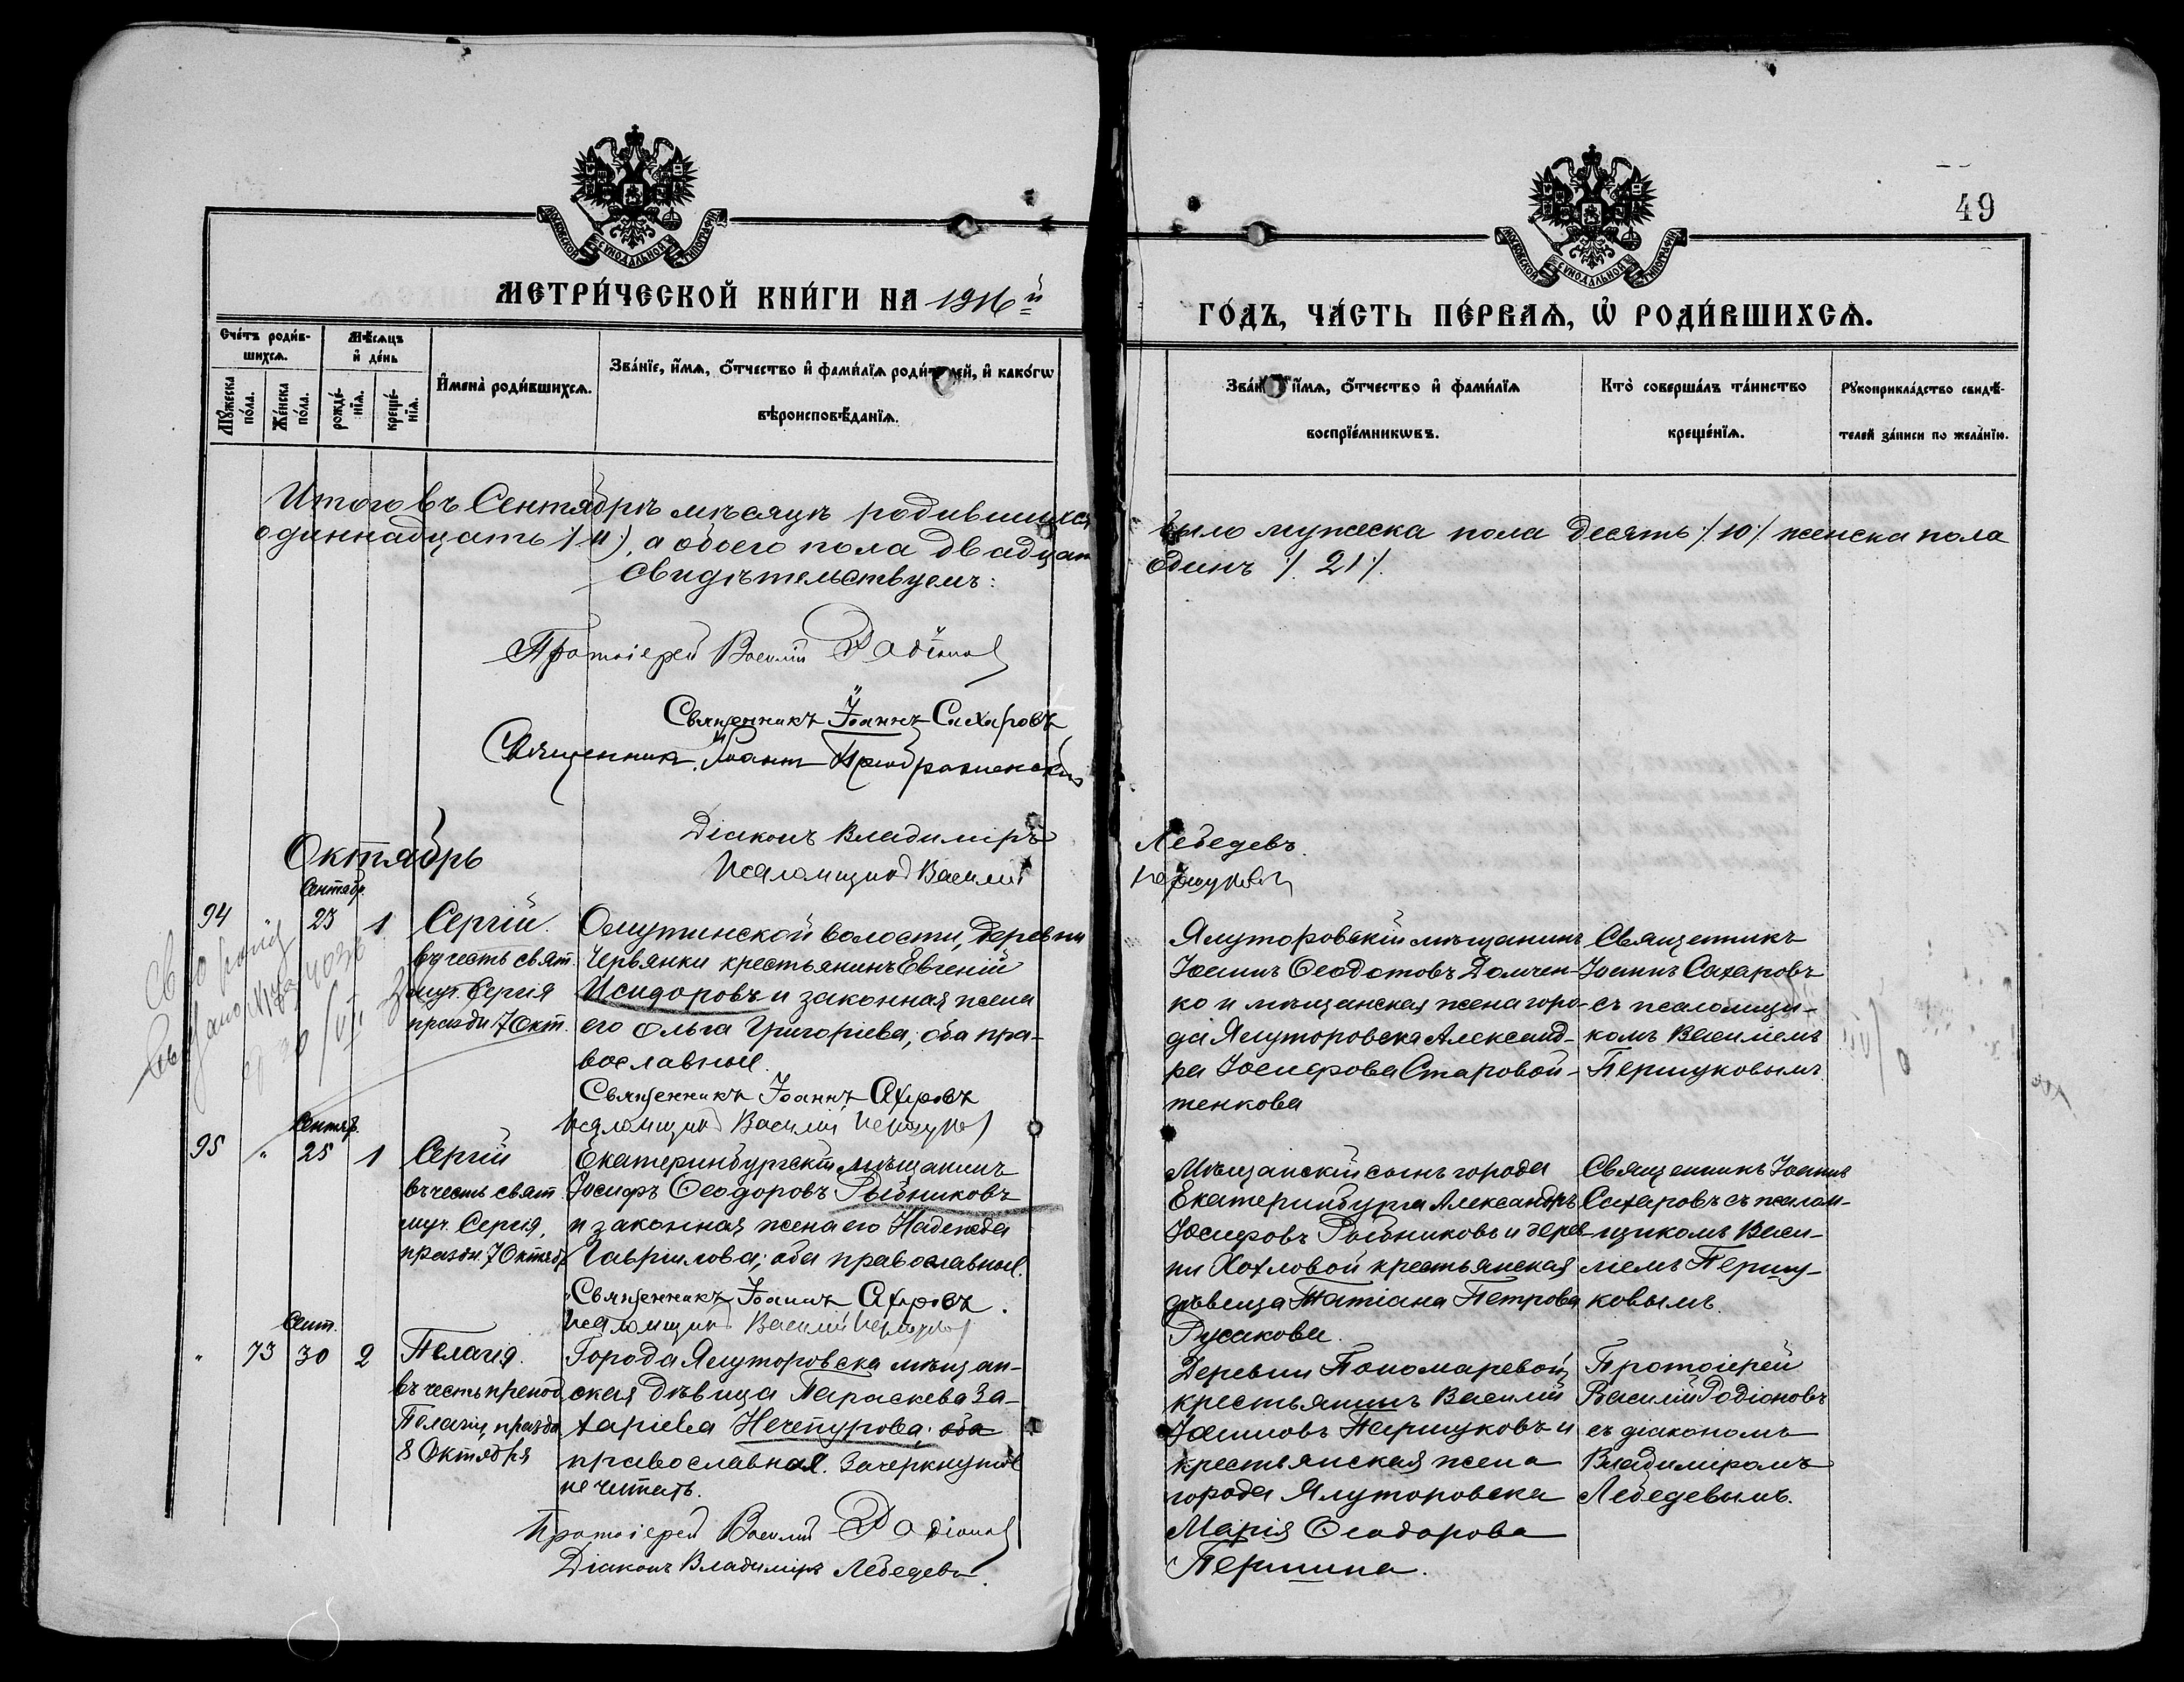 49
МОСКОВСКОЙ СѴНОДАЛЬНОЙ ТИПОГРАФІИ
МОСКОВСКОЙ СѴНОДАЛЬНОЙ ТИПОГРАФІИ
МЕТРИ́ЧЕСКОЙ КНИ́ГИ НА 1916й
ГО́ДЪ, ЧА́СТЬ ПЕ́РВАѦ, Ѡ҆ РОДИ́ВШИХСѦ.
Сче́тъ роди́в-
шихсѧ.
Мѣ́сѧцъ
и҆ де́нь
Мꙋ́жеска
по́ла.
Же́нска
по́ла.
рожде́-
нїѧ.
креще́-
нїѧ.
И҆мена̀ роди́вшихсѧ.
Зва́нїе, и҆́мѧ, ѻ҆́тчество и҆ фами́лїѧ роди́телей, и҆ како́гѡ
вѣроисповѣ́данїѧ.
Зва́нїе, и҆́мѧ, ѻ҆́тчество и҆ фами́лїѧ
воспрїе́мникѡвъ.
Кто̀ соверша́лъ та́инство
креще́нїѧ.
Рꙋкоприкла́дство свидѣ́-
телей за́писи по жела́нїю.
Итого въ Сентябрѣ мѣсяцѣ родившихся
было мужеска пола десять /10/ женска пола
одиннадцать /11/, а обоего пола двадцать
одинъ /21/.
Свидѣтельствуемъ:
Протоіерей Василій Родіонов
Священникъ Іоаннъ Сахаровъ
Священникъ Іоаннъ Преображенскій
Діаконъ Владиміръ
Лебедевъ.
Псаломщикъ Василій
Першуковъ
Октябрь
Сентябр.
94 " 23 1
Сергій.
въ честь свят.
муч. Сергія
праздн. 7 Окт.
Омутинской волости, деревни
Червянки крестьянинъ Евгеній
Исидоровъ и законная жена
его Ольга Григоріева; оба пра-
вославные.
Священникъ Іоаннъ Сахаровъ
Псаломщикъ Василій Першуков
Ялуторовскій мѣщанинъ
Іоаннъ Ѳеодотовъ Домчен-
ко и мѣщанская жена горо-
да Ялуторовска Александ-
ра Іосифова Старовой-
тенкова
Священникъ
Іоаннъ Сахаровъ
съ псаломщи-
комъ Василіемъ
Першуковымъ.
Сентяб.
95 " 25 1
Сергій
въ честь свят.
муч. Сергія,
праздн. 7 Октябр
Екатеринбургскій мѣщанинъ
Іосифъ Ѳеодоровъ Рыбниковъ
и законная жена его Надежда
Гавріилова; оба православные.
Священникъ Іоаннъ Сахаровъ.
Псаломщикъ Василій Першуков
Мѣщанскій сынъ города
Екатеринбурга Александръ
Іосифовъ Рыбниковъ и дерев-
ни Хохловой крестьянская
дѣвица Татіана Петрова
Русакова.
Священникъ Іоаннъ
Сахаровъ съ псалом-
щикомъ Васи-
ліемъ Першу-
ковымъ.
Сент.
" 73 30 2
Пелагія.
въ честь препод.
Пелагіи, праздн.
8 Октября
Города Ялуторовска мѣщан-
ская дѣвица Параскева За-
харіева Нечепурова; оба
православная. Зачеркнутое
не читать.
Протоіерей Василій Родіонов
Діаконъ Владиміръ Лебедевъ.
Деревни Пономаревой
крестьянинъ Василій
Іоанновъ Першуковъ и
крестьянская жена
города Ялуторовска
Марія Ѳеодорова
Першина.
Протоіерей
Василій Родіоновъ
съ діакономъ
Владиміромъ
Лебедевымъ.